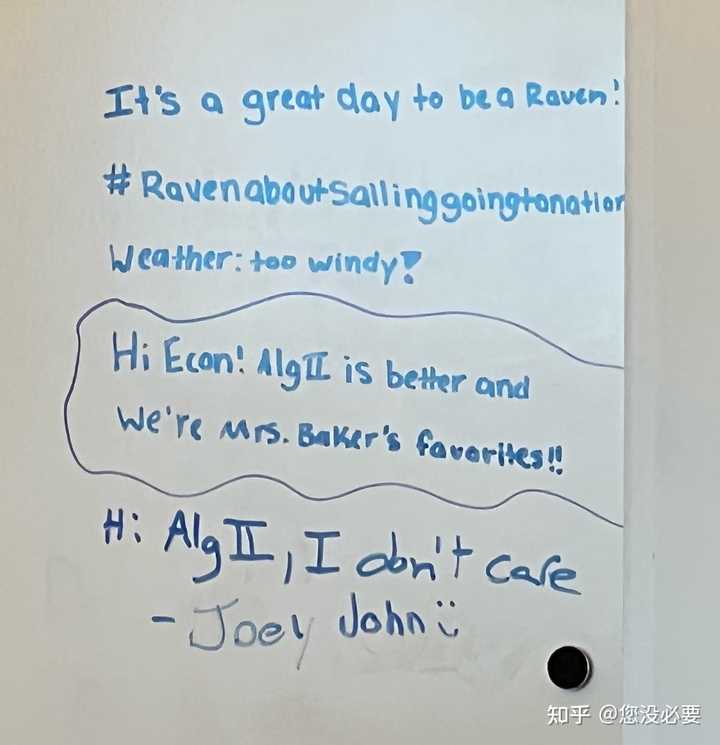 It's a great day to be a Raven!
#Ravenaboutsailinggoingtonation
Weather: too windy!
Hi Econ! Alg II is better and
We're Mrs. Baker's favorites!!
Hi Alg II, I don't care
- Joey John :)
知乎 @您没必要